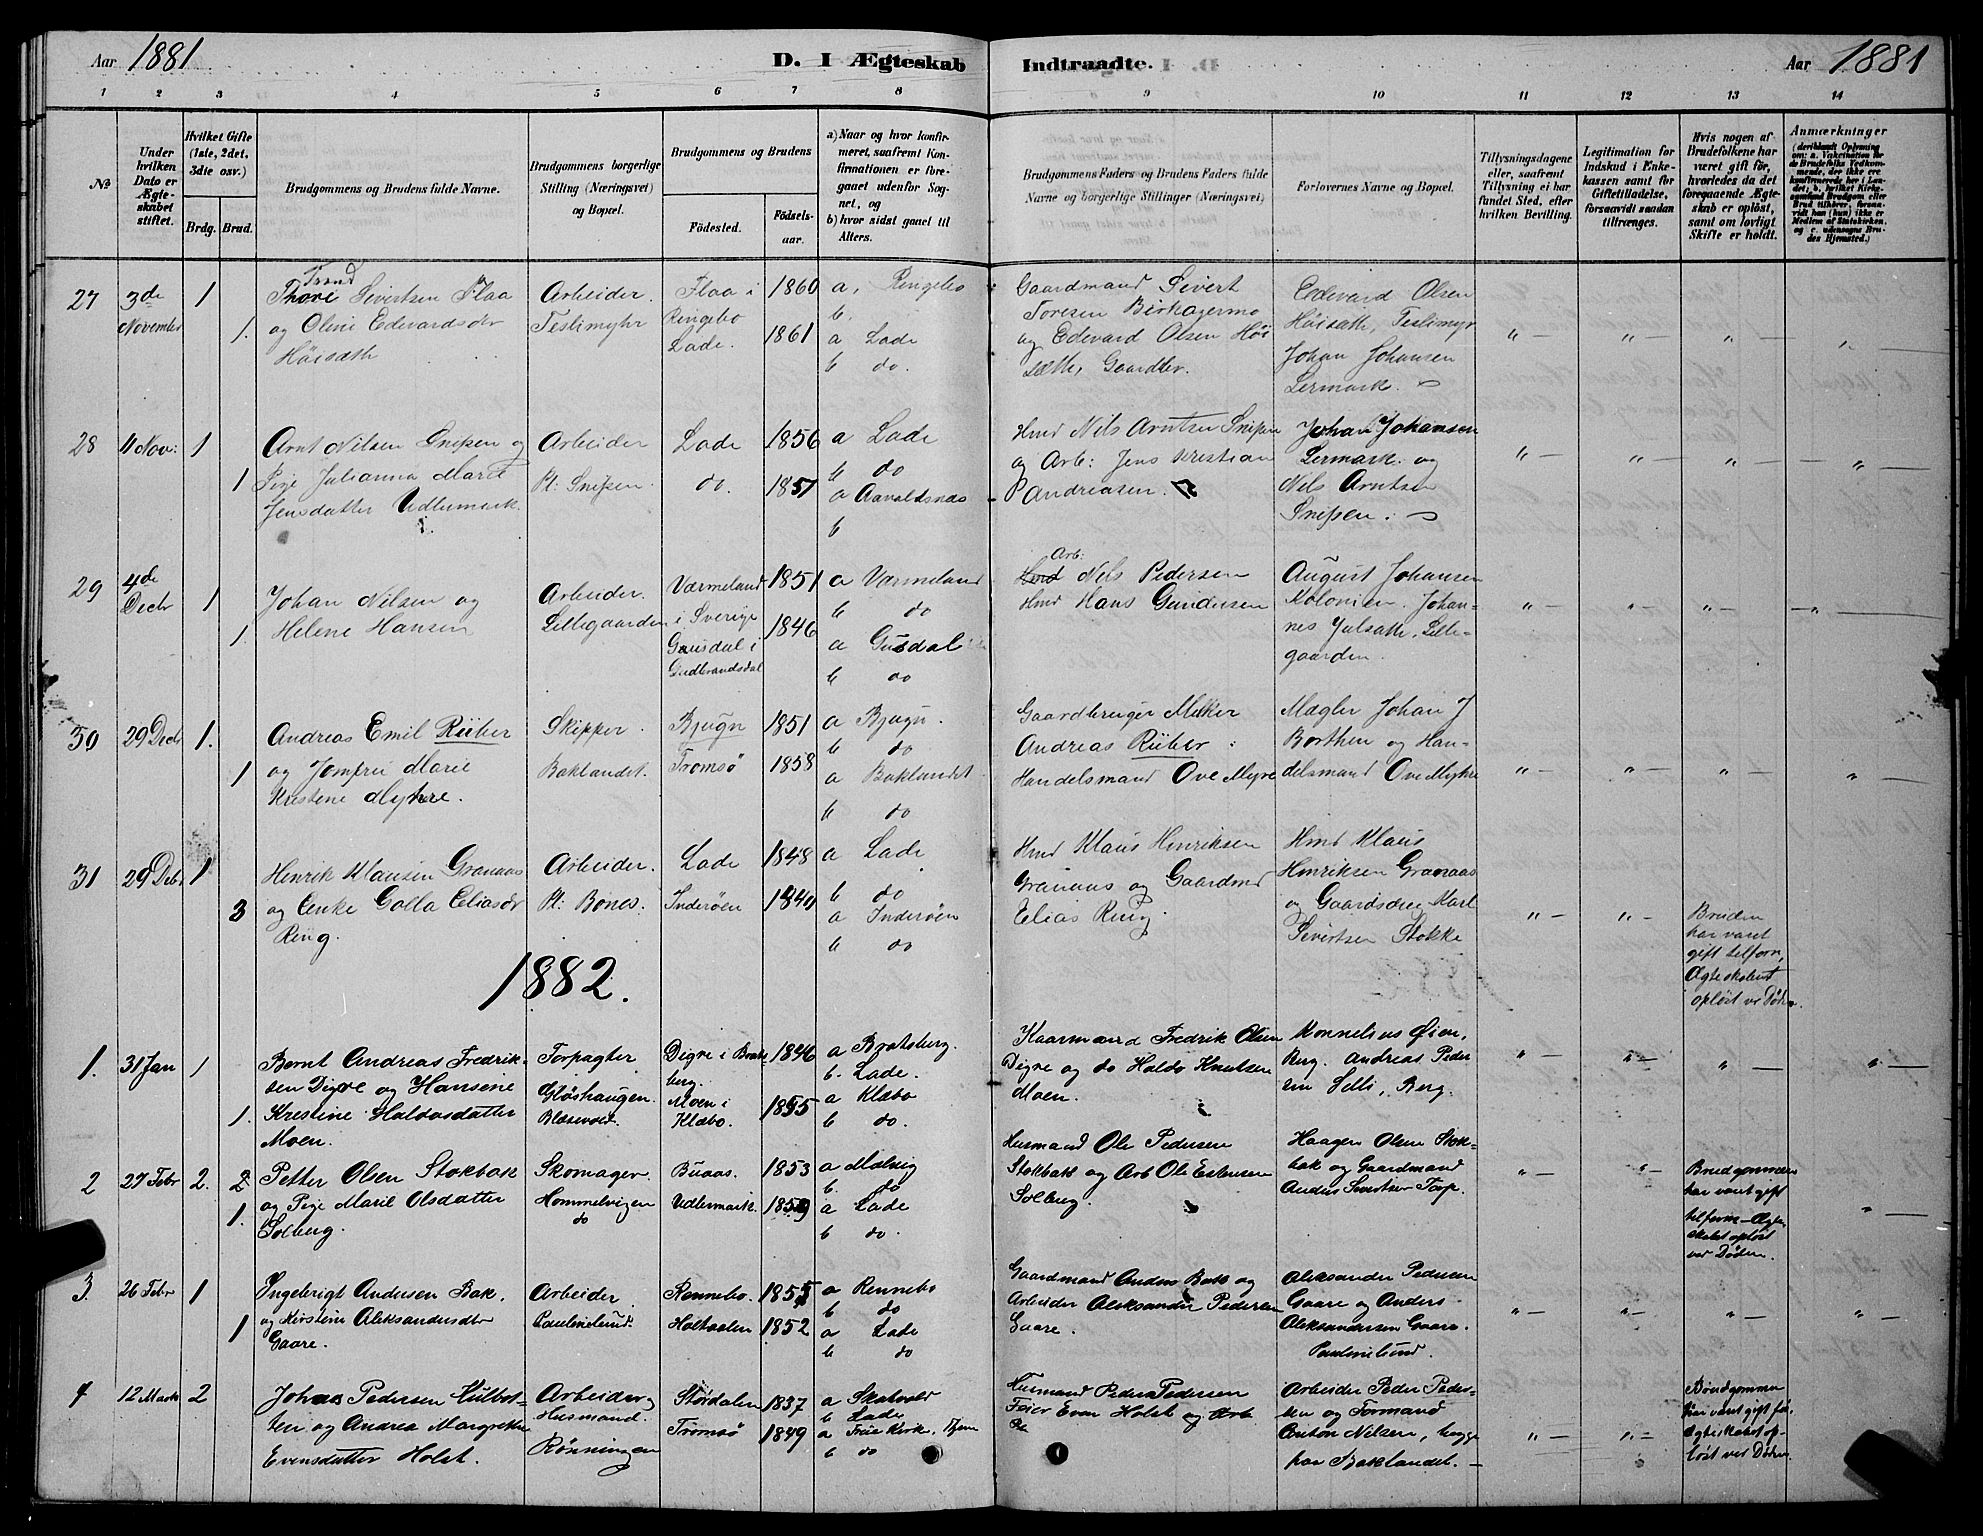 Aar 1881
D. I Ægteskab Indtraadte.
Aar 1881
1 2 3 4 5 6 7 8 9 10 11 12 13 14
№
Under hvilken Dato er Ægteskabet stiftet.
Hvilket Gifte (1ste, 2det, 3die osv.)
Brdg. Brud.
Brudgommens og Brudens fulde Navne.
Brudgommens borgerlige Stilling (Næringsvei) og Bopæl.
Brudgommens og Brudens
Fødested.
Fødselsaar.
a) Naar og hvor konfirmeret, saafremt Konfirmationen er foregaaet udenfor Sognet, og
b) hvor sidst gaaet til Alters.
Brudgommens Faders og Brudens Faders fulde Navne og borgerlige Stillinger (Næringsvei)
Forlovernes Navne og Bopæl.
Tillysningsdagene eller, saafremt Tillysning ei har fundet Sted, efter hvilken Bevilling.
Legitimation for Indskud i Enkekassen samt for Giftetilladelse, forsaavidt saadan tiltrænges.
Hvis nogen af Brudefolkene har været gift før, hvorledes da det foregaaende Ægteskab er opløst, samt om lovligt Skifte er holdt.
Anmærkninger
27 3de November 1 1.
Trond
Thore Sivertsen Flaa
og Oline Edevardsdtr
Høisæth
Arbeider.
Teslimyhr
Flaa i
Ringebo
Lade.
1860
1861
a, Ringebo
b.
a Lade
b do.
Gaardmand Sivert
Toresen Birkagermo
og Edevard Olsen Høi
sæth, Gaardbr.
Edevard Olsen
Høisæth, Teslimyr
Johan Johansen
Lermark.
28 11 Nov: 1 1
Arnt Nilsen Snipen og
Pige Julianna Marit
Jensdatter Udlermark.
Arbeider
Pl: Snipen.
Lade
do.
1856
1851
a Lade
b do
a Aavaldsnæs
b
Hmd Nils Arntsen Snipen
og Arb: Jens Kristian
Andreasen.
Johan Johansen
Lermark. og
Nels Arntsen
Snipen.
29 4de Decbr 1 1
Johan Nilsen og
Helene Hansen
Arbeider.
Lillegaarden
Værmeland
i Sverige
Gausdal i
Gudbrandsdal
1851
1846
a Værmeland
b do
a Gusdal
b do
Arb:
Hmd Nels Pedersen
Hmd Hans Gundersen
August Johansen
Kolonien. Johan-
nes Julsæth, Lille-
gaarden.
30 29 Decbr 1. 1
Andreas Emil Rüber
og Jomfru Marie
Kristine Myhre.
Skipper.
Baklandet.
Bjugn
Tromsø
1851
1858
a Bjugn.
b do
a Baklandet
b do
Gaardbruger Melker
Andreas Rüber.
Handelsmand Ove Myre
Mægler Johan J
Borthen og Han-
delsmand Ove Myhre
31 29 Decbr 1 3
Henrik Klausen Granaas
og Enke Golla Eliasdr
Ring.
Arbeider.
Pl: Bones.
Lade
Inderøen
1848
1840
a Lade
b do
a Inderøen
b do
Hmd Klaus Henriksen
Granaas og Gaardmd
Elias Ring.
Hmd Klaus
Henriksen Granaas
og Gaardsdreng Karl
Sivertsen Stokke
Bruden
har været
gift tilforn,
Ægteskabet
opløst ve Døden.
1882.
1. 31 Jan 1 1.
Bernt Andreas Fredrik-
sen Digre og Hansene
Kristine Haldosdatter
Moen.
Forpagter
Gløshaugen.
Blæsevold.
Digre i Brats-
berg.
Moen i
Klæbo.
1846
1855
a Bratsberg.
b. Lade.
a Klæbo
b do.
Kaarmand Fredrik Olsen
Digre og do Haldo Knutsen
Moen.
Kornelius Øien,
Berg. Andreas Peder
sen Selli, Berg.
2 27 Febr 2. 2 1.
Petter Olsen Stokbak
og Pige Marie Olsdatter
Solberg.
Skomager
Hommelvigen
do
Buaas.
Udlermark.
1853
1859
a Malvig
b. do
a Lade
b do.
Husmand Ole Pedersen
Stokbakk og Arb Ole Estensen
Solberg.
Haagen Olsen Stok-
bak og Gaardmand
Anders Sivertsen Torp.
Brudgommen
har været gift
tilforn - Ægte-
skabet opløst
ved Døden.
3. 26 Febr 1 1
Ingebrigt Andersen Bak.
og Kirstine Aleksandersdtr
Gaare.
Arbeider.
Paulinelund.
Rennebo.
Holtaalen
1855
1852
a Rennebo
b do
a Lade
b do
Gaardmand Anders Bakk og
Arbeider Aleksander Pedersen
Gaare.
Aleksander Pedersen
Gaare og Anders
Aleksandersen Gaare.
Paulinelund.
4 12 Marts 2
Johan Pedersen Hulbek-
ken og Andrea Margrethe
Evensdatter Holst.
Arbeider og
Husmand.
Rønningen
Størdalen
Tromsø
1837
1849
a Skatvold
b Lade
a Frue Kirk. Thjem
b do
Husmand Peder Pedersen
Feier Even Holst og Arb
Arbeider Peder Peder-
sen og Formand
Anton Nilsen, begge
paa Baklandet.
Brudgommen
har været gift før.
Ægteskabet op-
løst ved Døden.